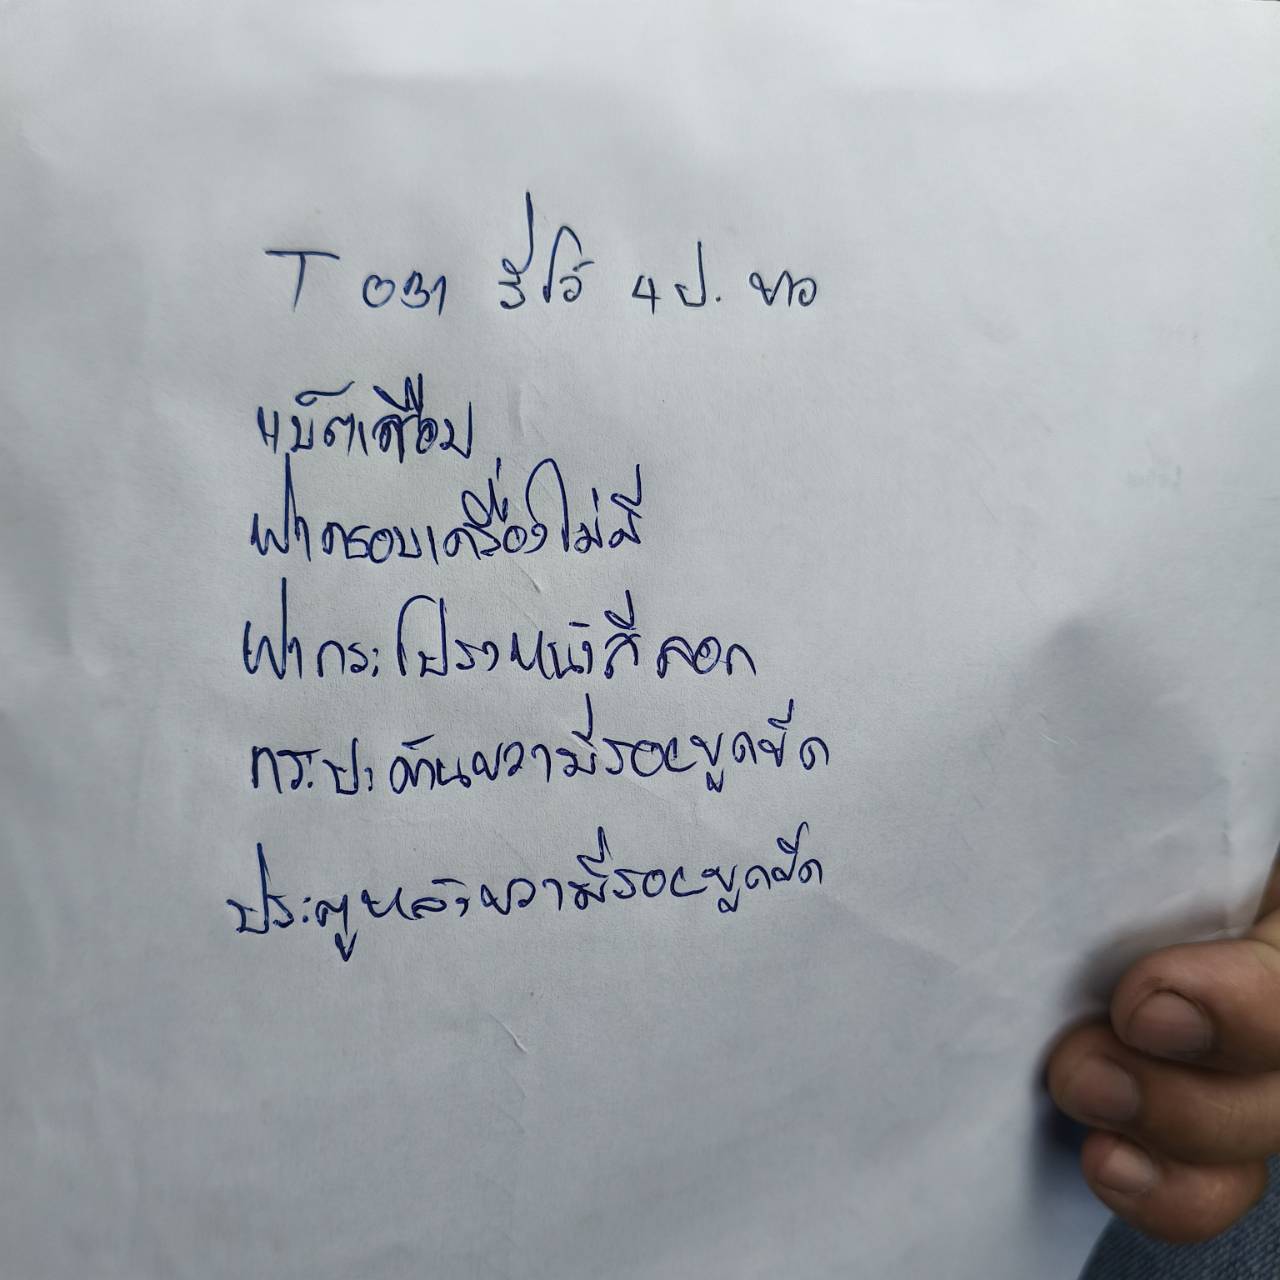 T 031 รีโว้ 4 ป. ขาว
แบ็ตเสื่อม
ฝาครอบเครื่องไม่มี
ฝากระโปรงหน้าสีลอก
กระบะด้านขวามีรอยขูดขีด
ประตูหลังขวามีรอยขูดขีด